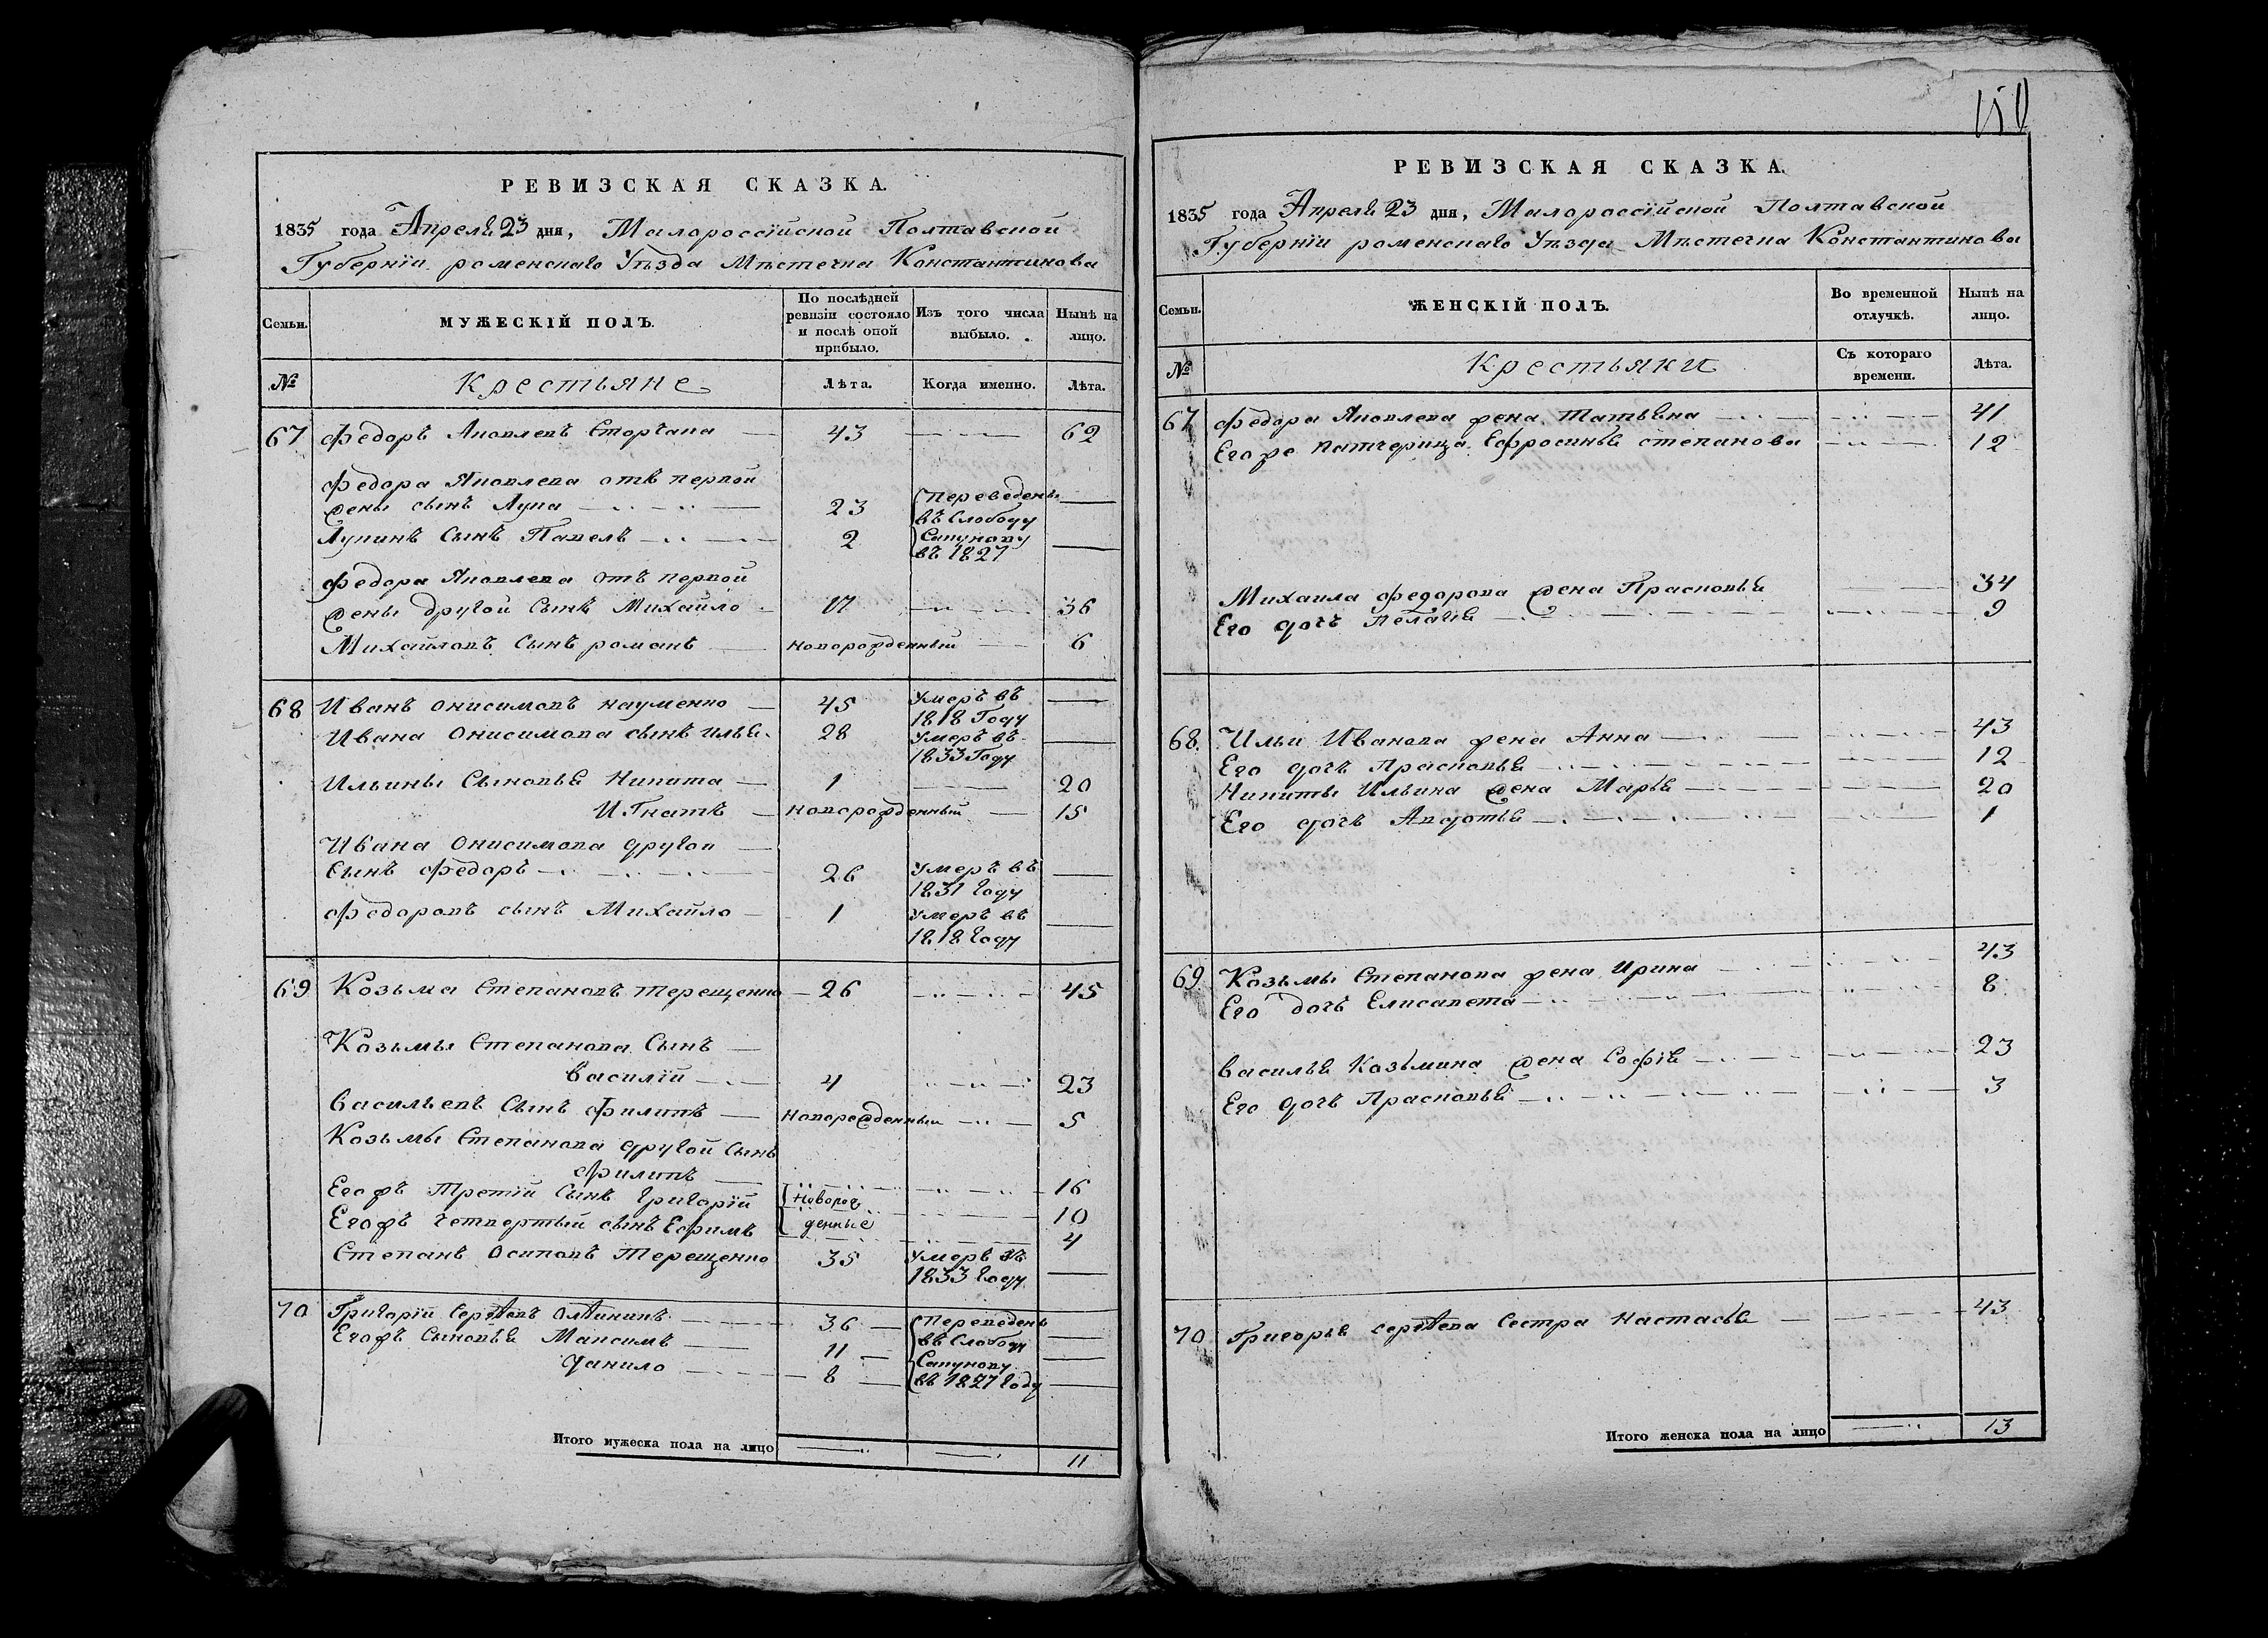 РЕВИЗСКАЯ СКАЗКА.
1835 года Апреля 23 дня, Малороссійской Полтавской
Губерніи роменскаго Уѣзда Мѣстечка Константинова
Семьи.
МУЖЕСКІЙ ПОЛЪ.
По послѣдней ревизіи состояло и послѣ оной прибыло.
Изъ того числа выбыло.
Нынѣ на лицо.
№
Крестьяне
Лѣта.
Когда именно.
Лѣта.
67 Федоръ Яковлевъ 43 62
Федора Яковлева отъ первой
жены сынъ Лука 23 Переведены
въ Слободу
Лукинъ Сынъ Павелъ 2 Сакунову
въ 1827
Федора Яковлева отъ первой
жены другой Сынъ Михайло 17 36
Михайловъ Сынъ романъ новорожденный 6
68 Иванъ Онисимовъ науменко 45 Умеръ въ
1818 Году
Ивана Онисимова сынъ илья 28 Умеръ въ
1833 Году
Ильины Сыновья Никита 1 20
Игнатъ новорожденный 15
Ивана Онисимова другой
Сынъ Федоръ 26 Умеръ въ
1831 году
Федоровъ сынъ Михайло 1 Умеръ въ
1818 году
69 Козьма Степановъ терещенко 26 45
Козьмы Степанова Сынъ
Василій 4 23
Васильевъ Сынъ Филипъ новорожденный 5
Козьмы Степанова другой Сынъ
Филипъ 16
Егожъ Третій Сынъ Григорій новорож 10
Егожъ четвертый сынъ Ефимъ денные 4
Степанъ Осиповъ Терещенко 35 Умеръ въ
1833 году
70 Григорій Сергѣевъ 36 Переведены
въ Слободу
Егожъ Сыновья Максимъ 11 Сакунову
данило 8 въ 1827 году
Итого мужеска пола на лицо 11
150
РЕВИЗСКАЯ СКАЗКА.
1835 года Апреля 23 дня, Малороссійской Полтавской
Губерніи роменскаго Уѣзда Мѣстечка Константинова
Семьи.
ЖЕНСКІЙ ПОЛЪ.
Во временной отлучкѣ.
Нынѣ на лицо.
№
Крестьяки
Съ котораго времени.
Лѣта.
67 Федора Яковлева жена Татьяна 41
Егоже патчерица Ефросинья степанова 12
Михаила Федорова жена Прасковья 34
Его дочь Пелагия 9
68. Ильи Иванова жена Анна 43
Его дочь Прасковья 12
Никиты Ильина жена Марья 20
Его дочь Авдотья 1
69 Козьмы Степанова жена Ирина 43
Его дочь Елисавета 8
Василья Козьмина жена Софія 23
Его дочь Прасковья 3
70 Григорья сергѣева Сестра Настасья 43
Итого женска пола на лицо 13